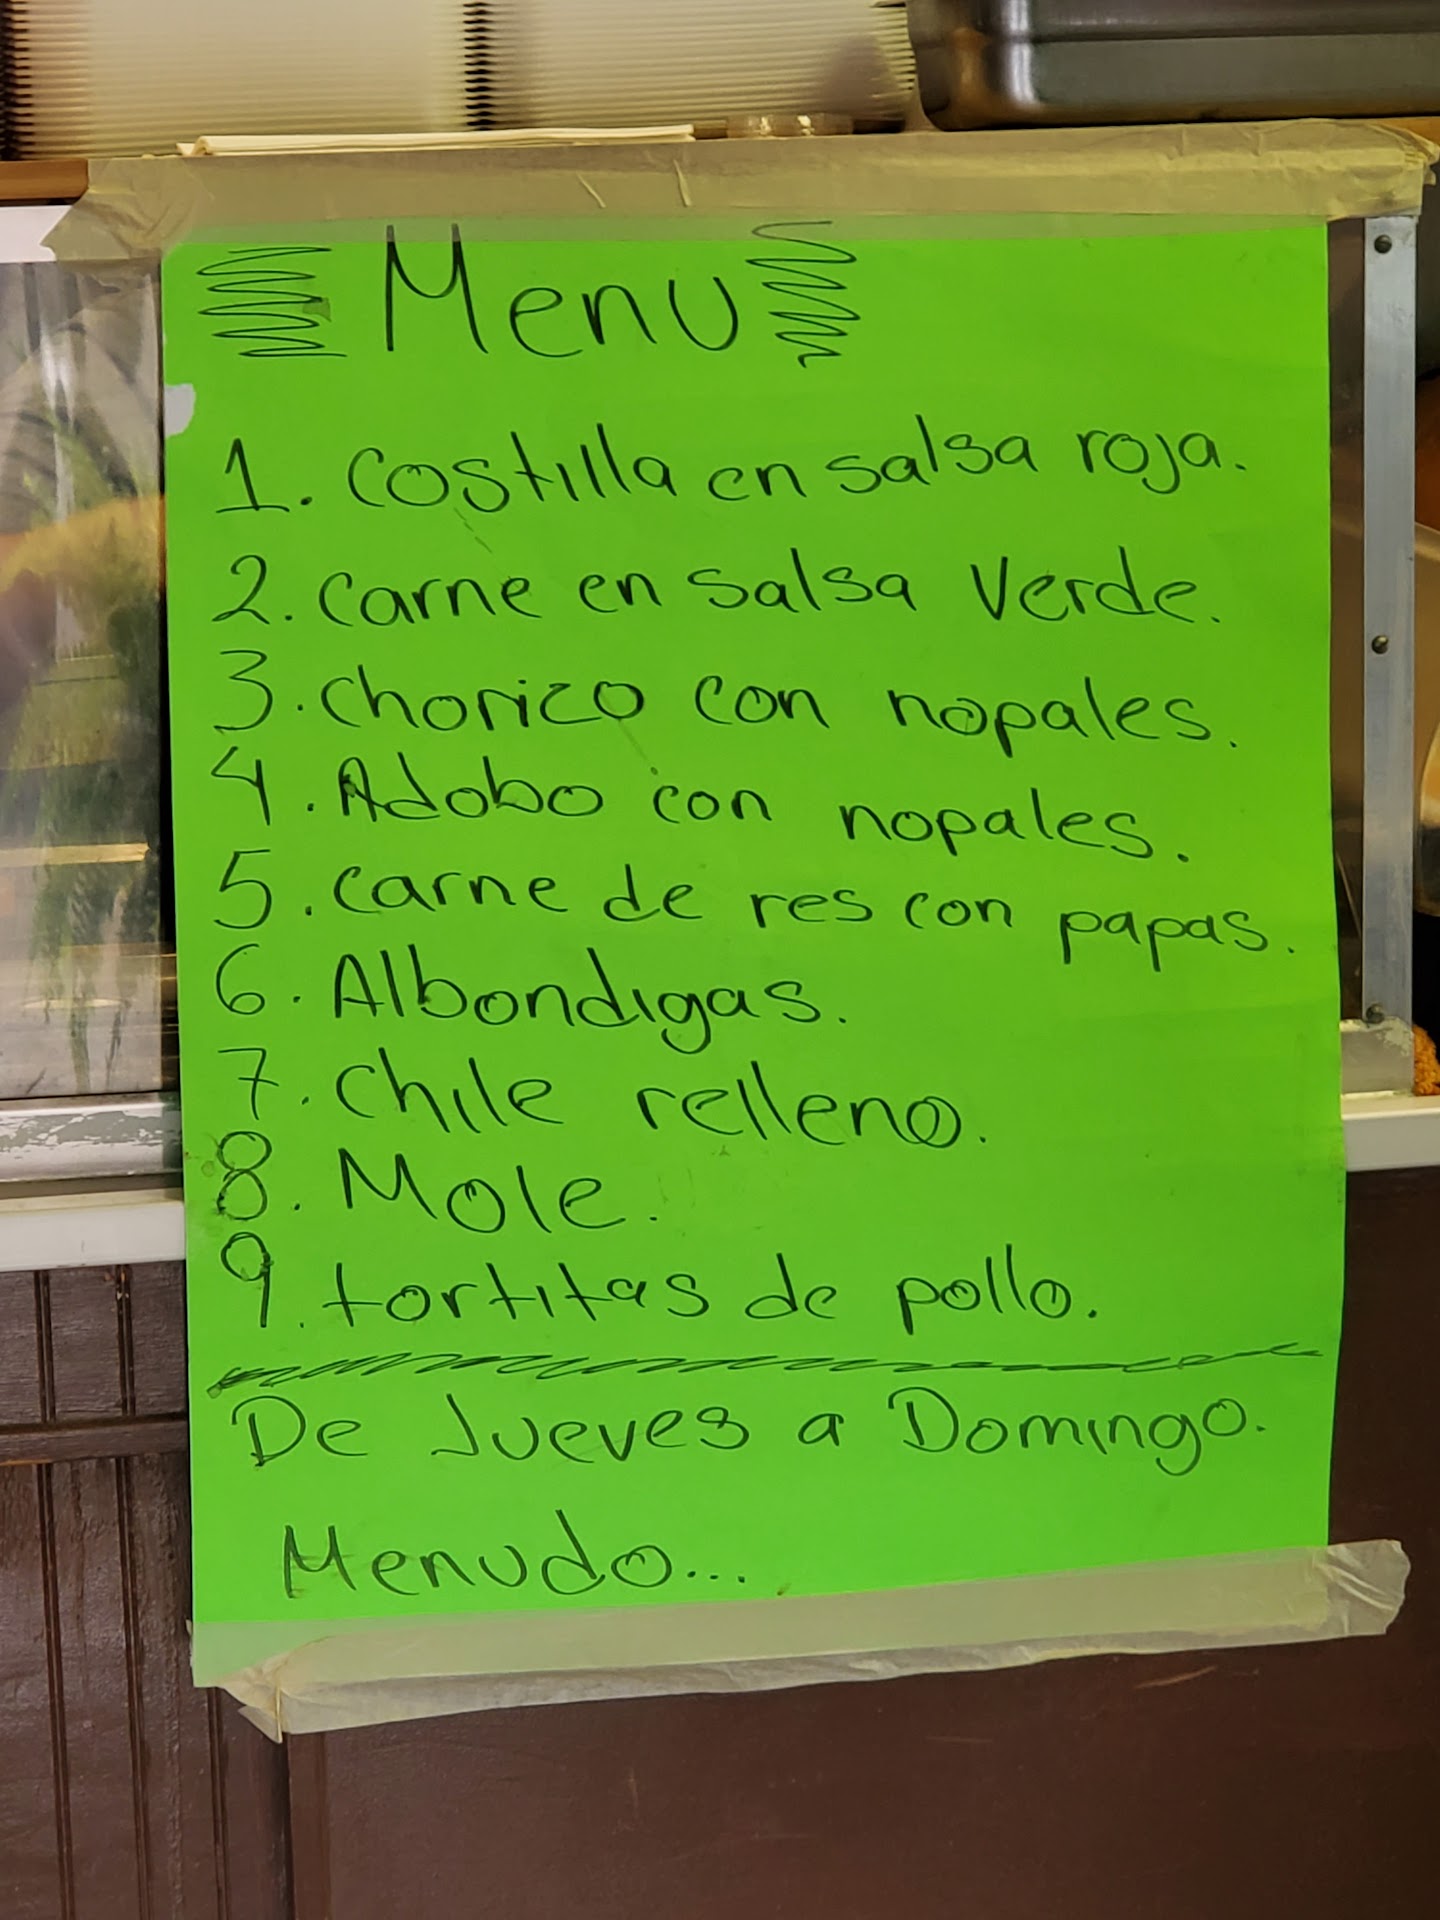 Menu
1. costilla en salsa roja.
2. carne en salsa verde.
3. chorico con nopales.
4. Adobo con nopales.
5. carne de res con papas.
6. Albondigas.
7. chile relleno.
8. Mole.
9. tortitas de pollo.
De Jueves a Domingo.
Menudo...